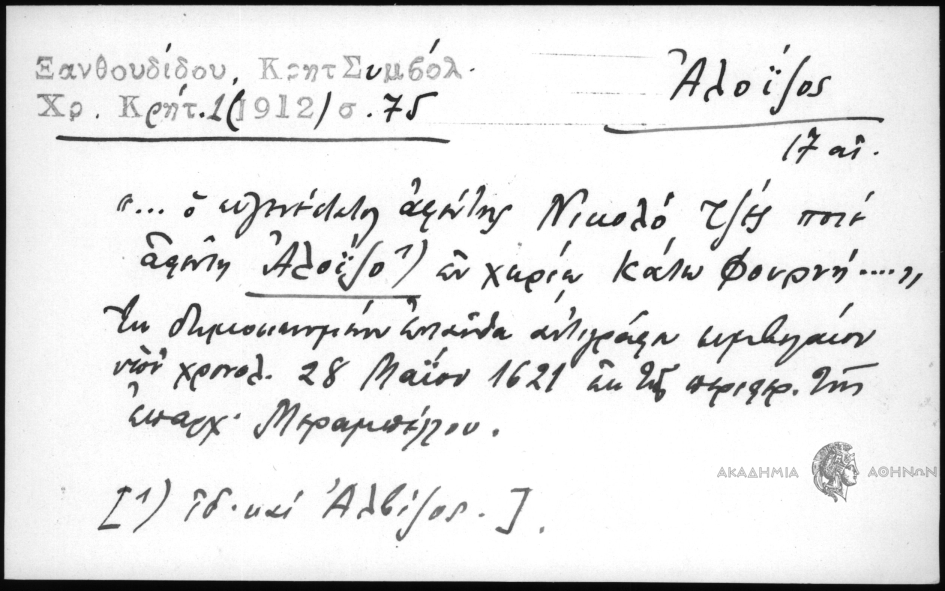 Ξανθουδίδου, Κρητ Συμβόλ.
Χρ. Κρήτ. 1(1912) σ. 75
Ἀλοΐζος
17 αἰ.
"... ὁ εὐγενέστατος ἀφέντης Νικολό Τζές ποτέ
ἀφέντη Ἀλοΐζο ¹) ἐν χωρίω Κάτω Φουρνή ...."
Ἐκ δημοσιευομένου ἐνταῦθα ἀντιγράφου συμβολαίου
ὑπό χρονολ. 28 Μαΐου 1621 ἐκ τῆς περιφερ. τῆς
ἐπαρχ. Μεραμπέλλου.
[¹) ἰδ. καί Ἀλβίζος.].
ΑΚΑΔΗΜΙΑ ΑΘΗΝΩΝ